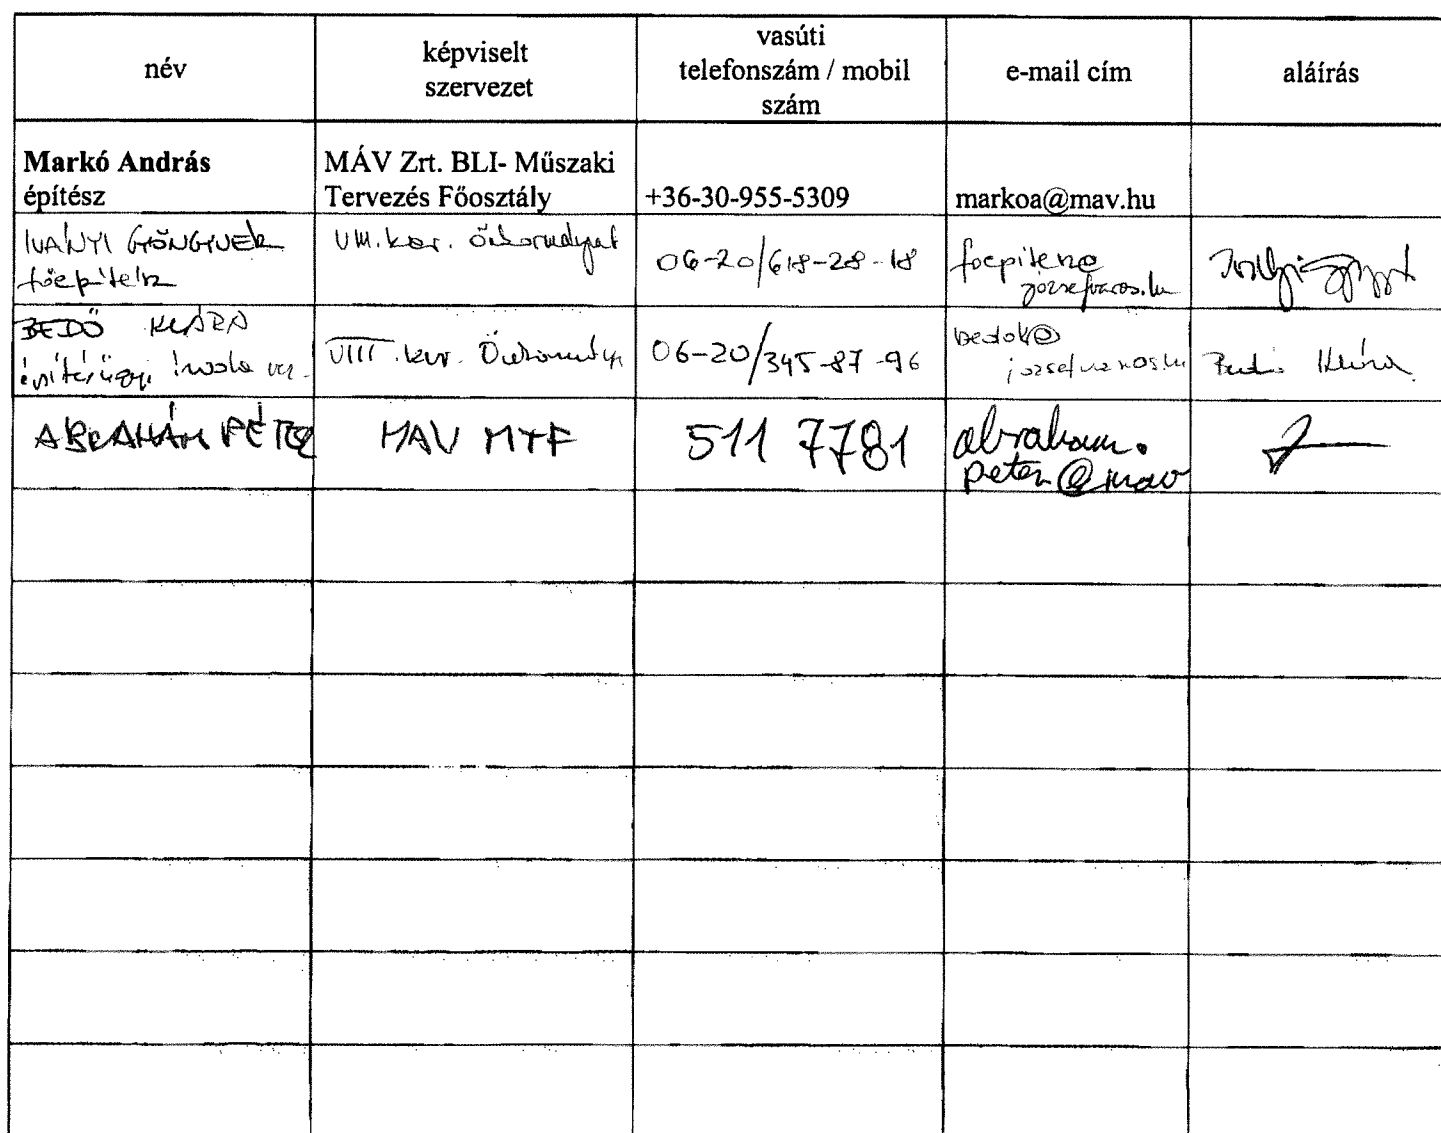 név
képviselt
szervezet
vasúti
telefonszám / mobil
szám
e-mail cím
aláírás
Markó András
építész
MÁV Zrt. BLI- Műszaki
Tervezés Főosztály
+36-30-955-5309
markoa@mav.hu
IVÁNYI GYÖNGYVÉR
főépítész
VIII. ker. Önkormányzat
06-20/618-28-18
foepitesz@
jozsefvaros.hu
BEDŐ KLÁRA
építésügyi iroda vez.
VIII. ker. Önkormányz
06-20/345-87-96
bedok@
jozsefvaros.hu
Bedő Klára
ÁBRAHÁM PÉTER
MÁV MTF
511 7781
abraham.
peter@mav